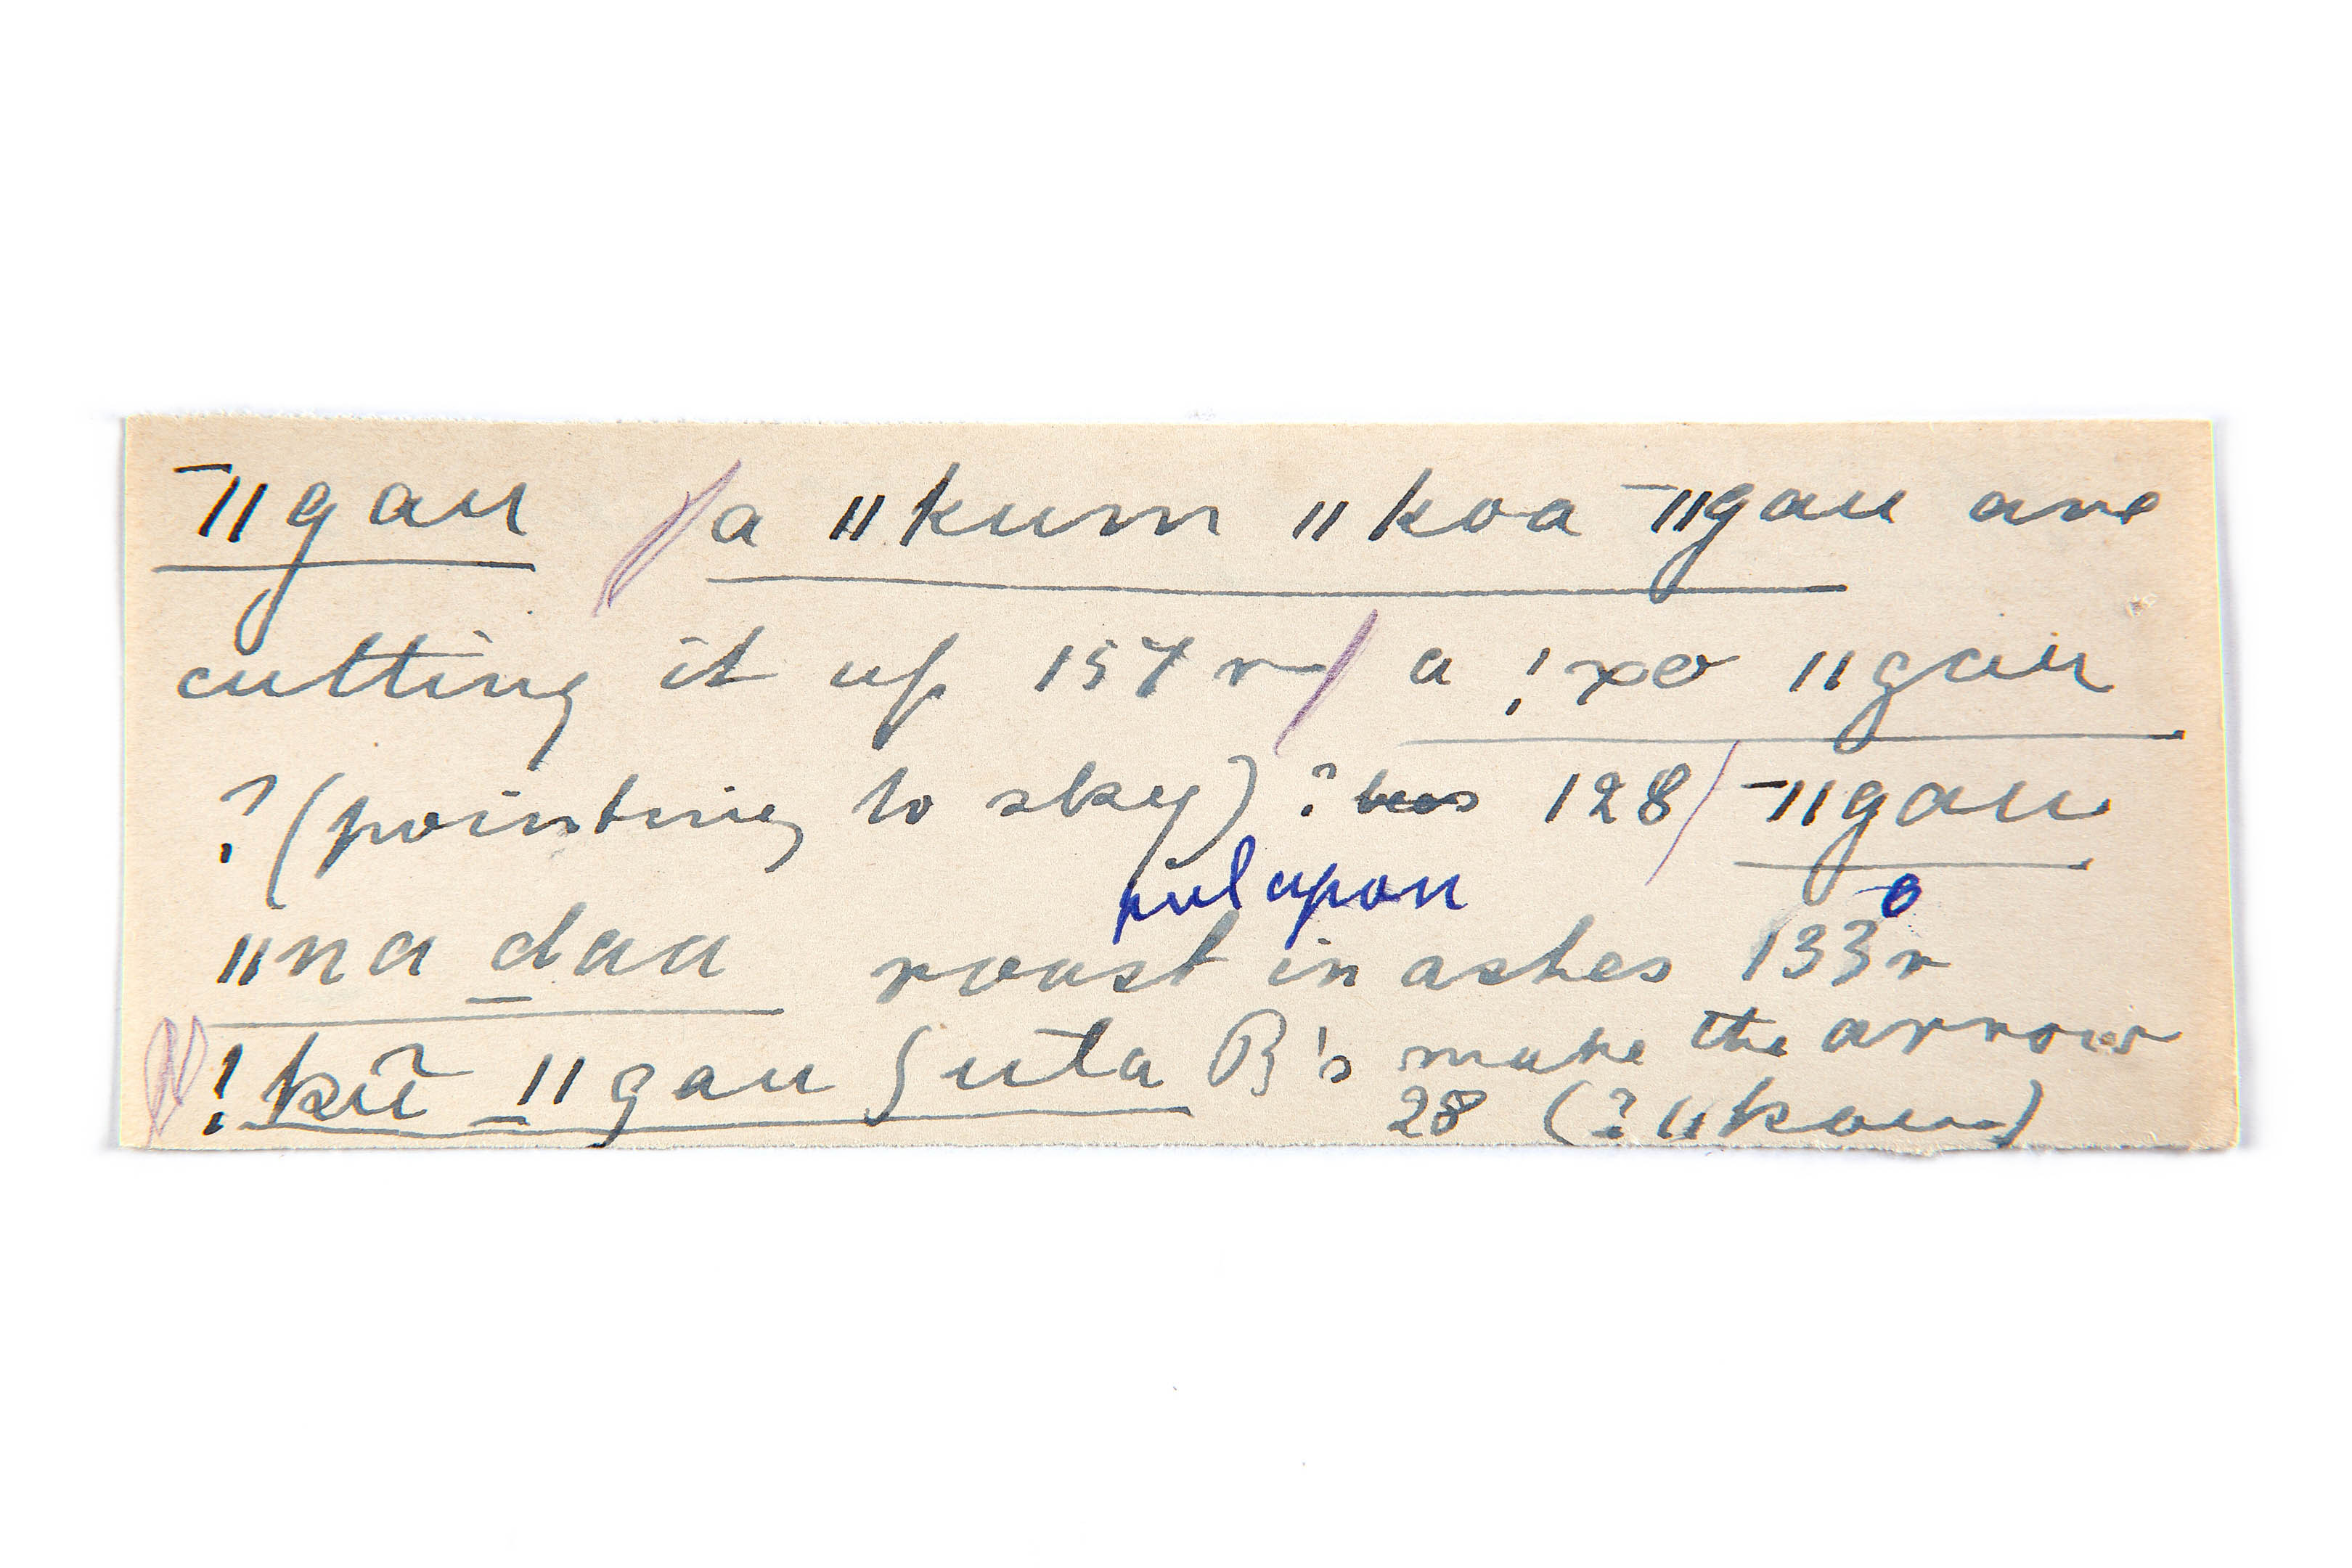 ¯ǁgau / a ǁkum ǁkoa ¯ǁgau are
cutting it up 157 r / a !xo ǁgau
? (pointing to sky) ? 128 / ¯ǁgau
put upon
ǁna daa roast in ashes 133 r
!kũ ǁgau ʃuta B's make the arrow
28 (? ǁkau)